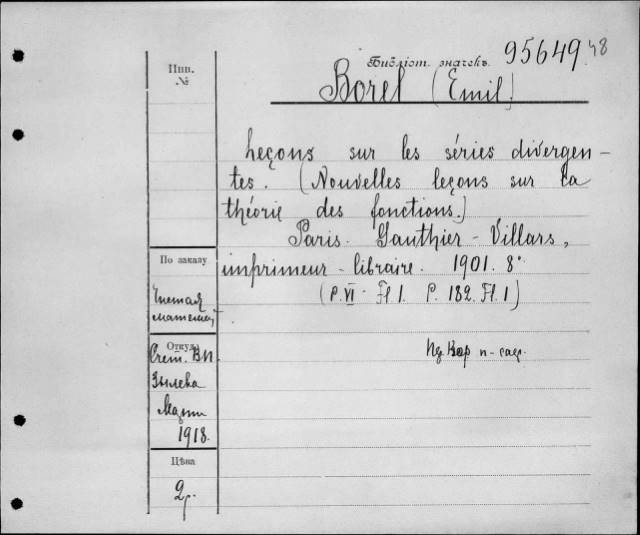 Библіот. значекъ 95649 48
Инв.
№
Borel (Emil.)
Leçons sur les séries divergen-
tes. (Nouvelles leçons sur la
théorie des fonctions.)
Paris. Gauthier-Villars,
imprimeur-libraire. 1901. 8°.
(P. VI - Fl 1. P. 182. Fl. 1)
По заказу
Чистая
математ
Откуда
1918.
Цѣна
2 р.